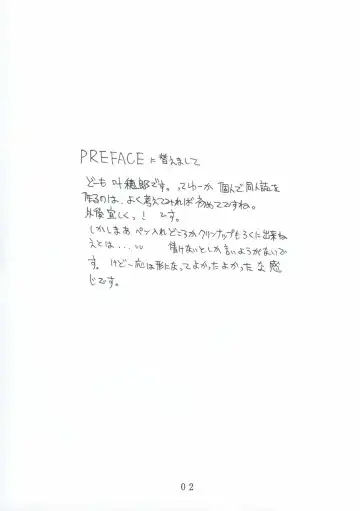 PREFACEに替えまして
どーも 叶穂郎です。ってゆーか 個人で同人誌を
作るのは、よく考えてみれば初めてですね。
以後宜しくっ! です。
しかしまあ ペン入れどころかクリンナップもろくに出来ね
えとは・・・ 情けないとしか言いようがないで
す。けど一応は形になってよかったよかったな感
じです。
02